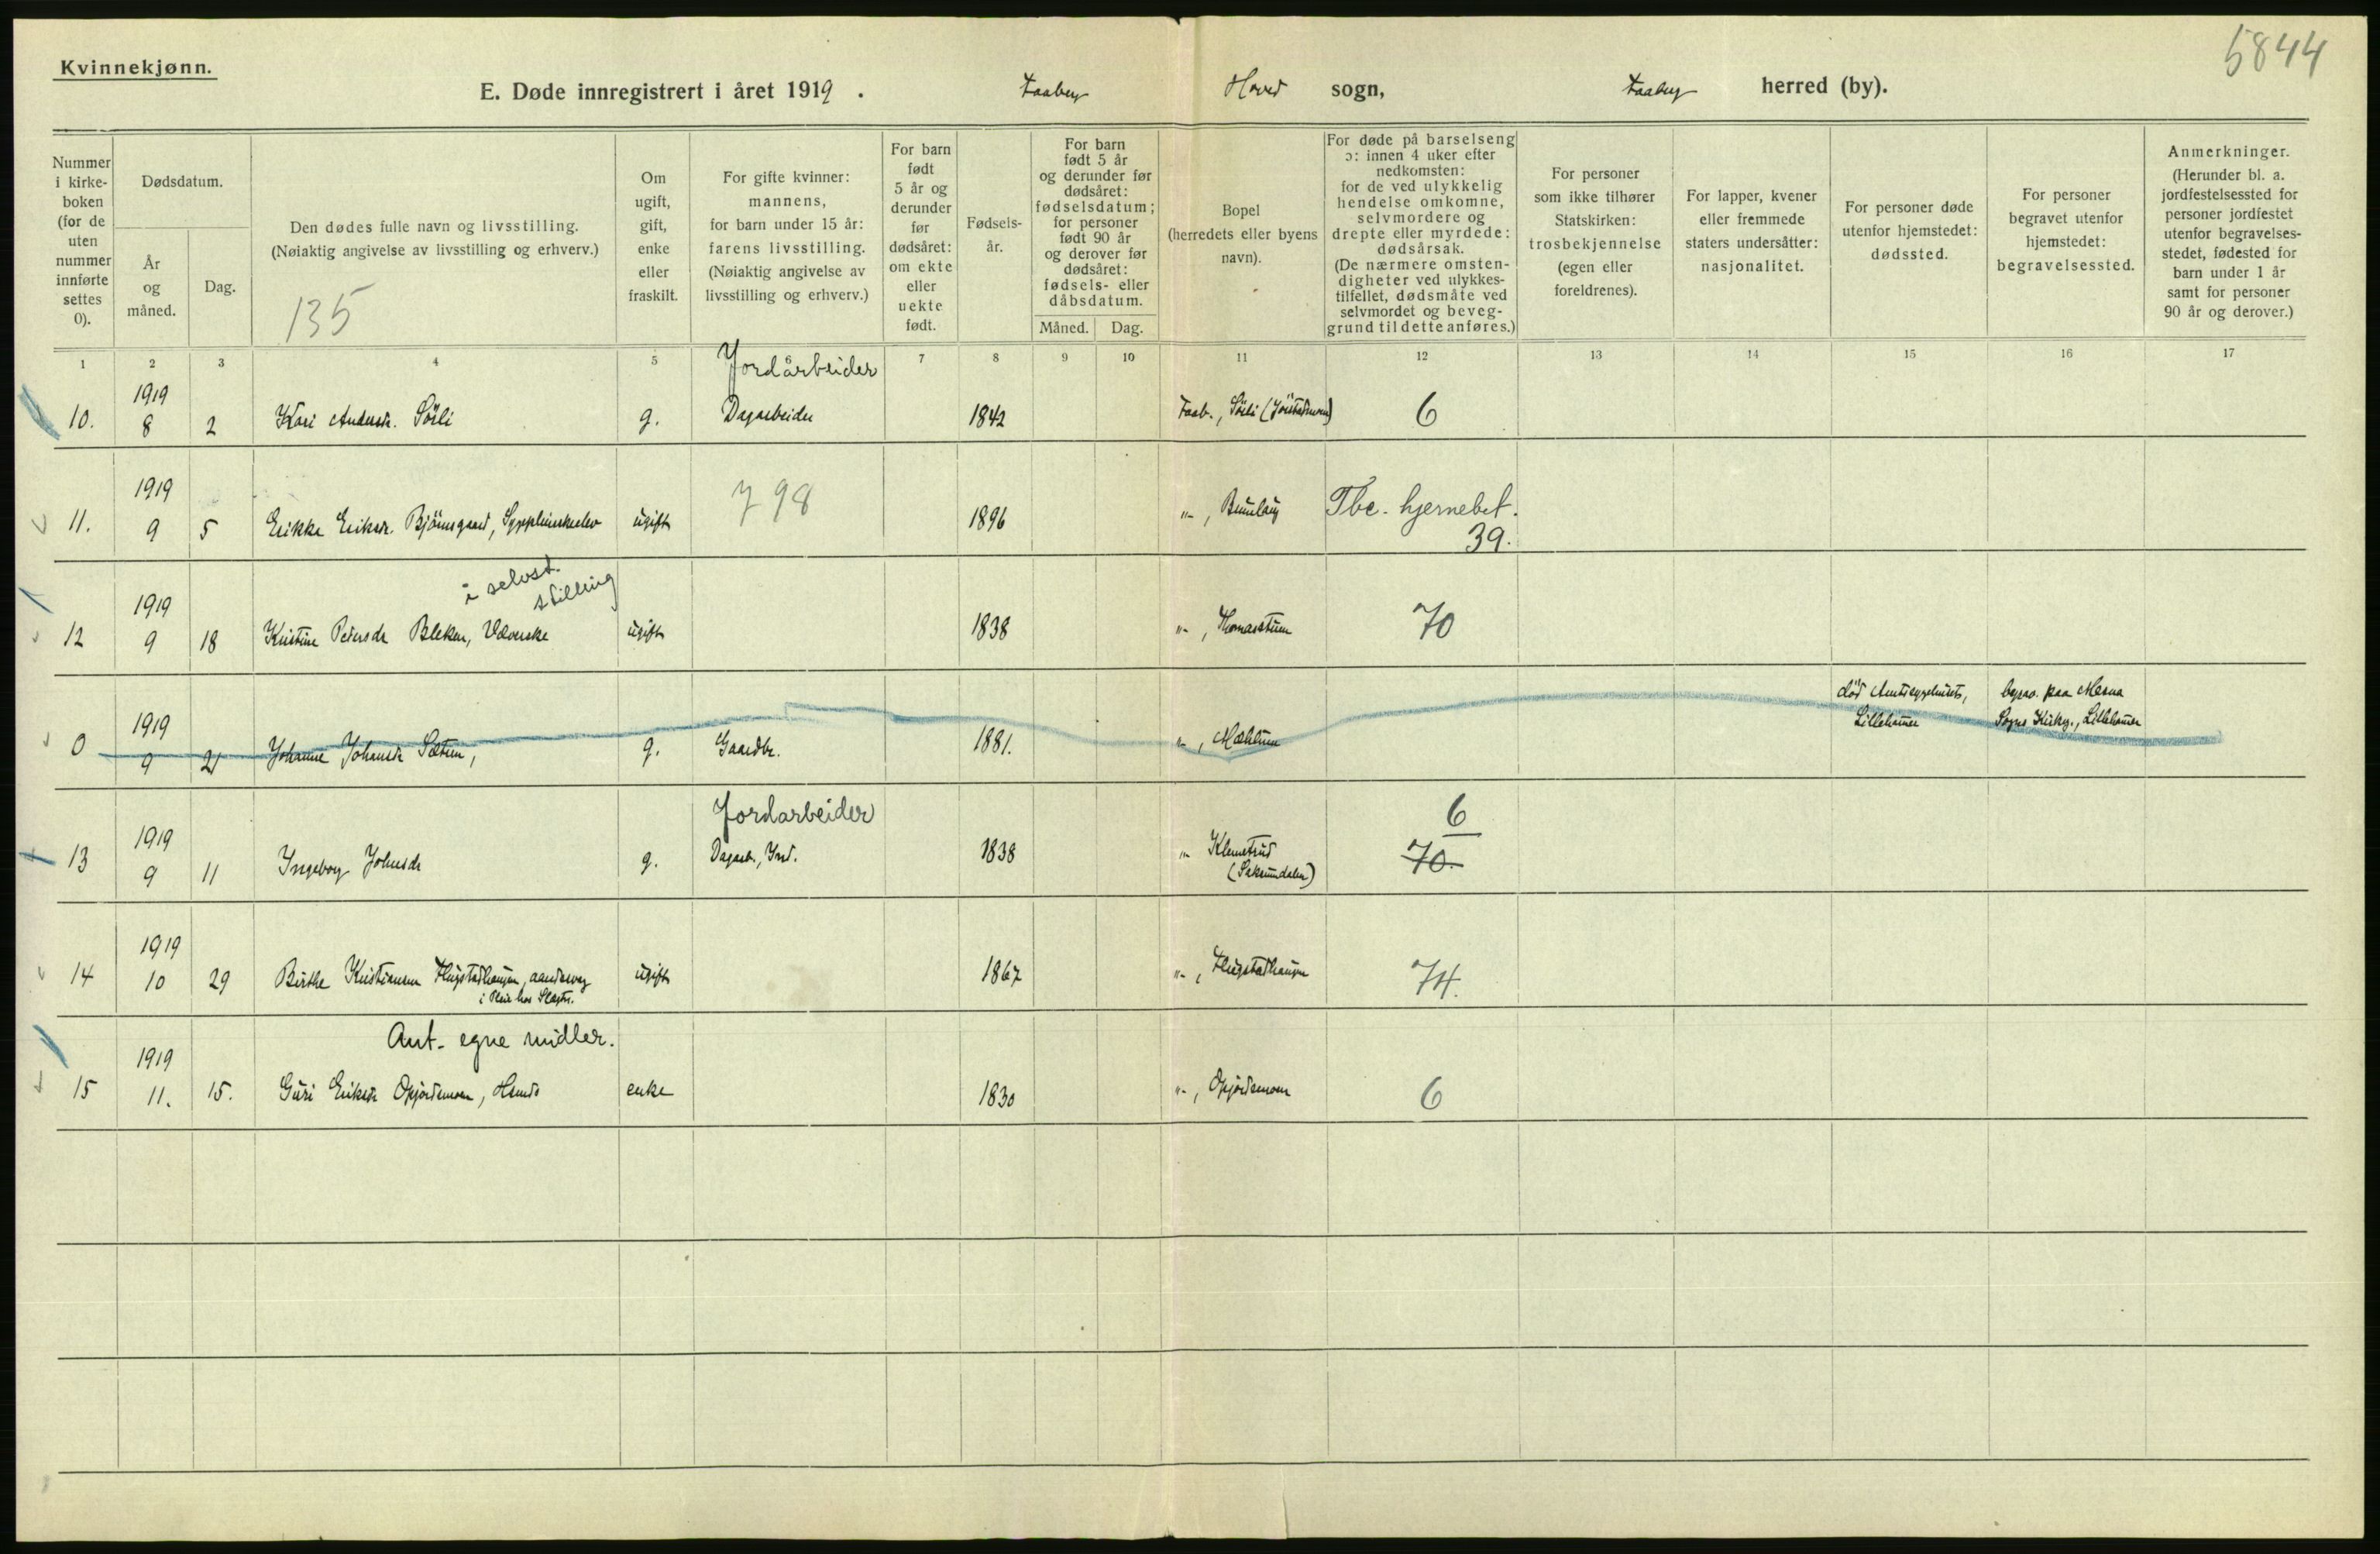 5844
Kvinnekjønn.
E. Døde innregistrert i året 1919. Faaberg Hoved sogn, Faaberg herred (by).
Nummer i kirke-boken (for de uten nummer innførte settes 0).
Dødsdatum.
År og måned.
Dag.
Den dødes fulle navn og livsstilling.
(Nøiaktig angivelse av livsstilling og erhverv.)
135
Om ugift, gift, enke eller fraskilt.
For gifte kvinner: mannens, for barn under 15 år: farens livsstilling. (Nøiaktig angivelse av livsstilling og erhverv.)
For barn født 5 år og derunder før dødsåret: om ekte eller uekte født.
Fødsels-år.
For barn født 5 år og derunder før dødsåret: fødselsdatum; for personer født 90 år og derover før dødsåret: fødsels- eller dåbsdatum.
Måned. Dag.
Bopel (herredets eller byens navn).
For døde på barselseng ɔ: innen 4 uker efter nedkomsten: for de ved ulykkelig hendelse omkomne, selvmordere og drepte eller myrdede: dødsårsak. (De nærmere omsten-digheter ved ulykkes-tilfellet, dødsmåte ved selvmordet og beveg-grund til dette anføres.)
For personer som ikke tilhører Statskirken: trosbekjennelse (egen eller foreldrenes).
For lapper, kvener eller fremmede staters undersåtter: nasjonalitet.
For personer døde utenfor hjemstedet: dødssted.
For personer begravet utenfor hjemstedet: begravelsessted.
Anmerkninger. (Herunder bl. a. jordfestelsessted for personer jordfestet utenfor begravelses-stedet, fødested for barn under 1 år samt for personer 90 år og derover.)
1 2 3 4 5 7 8 9 10 11 12 13 14 15 16 17
Jordarbeider
1919
10. 8 2 Kari Andersdr. Sörli g. Dagarbeider 1842 Faab., Sörli (Jörstadmoen) 6
1919 798
11. 9 5 Erikke Eriksdr. Björnsgaard, Sygepleierskeelev ugift 1896 "-, Bunlaug Tbc. hjernebet.
39.
i selvst. stilling
1919
12 9 18 Kristine Pedersdr Bleken, Væverske ugift 1838 "-, 70
1919 död Amtssygehuset, begrav. paa Mesna
0 9 21 Johanne Johansdr Sætrum, g. Gaardbr. 1881. "-, Mæhlum Lillehamer Sogns Kirkeg., Lillehamer
Jordarbeider 6
1919
13 9 11 Ingeborg Johnsdr g. Dagarb., Ind. 1838 "- Klemetrud 70.
(Saksumdalen)
1919
14 10 29 Birthe Kristiansen Flugstadhaugen, aandssvag ugift 1867 "-, Flugstadhaugen 74.
i Pleie hos Slægtn.
Ant. egne midler.
1919
15 11. 15. Guri Eriksdr Opjordsmoen, enke 1830 "-, Opjordsmoen 6